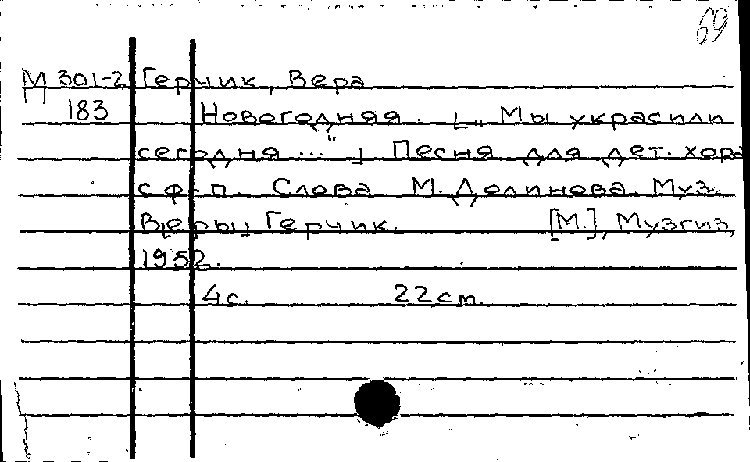 69
М 301-2 Герчик, Вера
183 Новогодняя. [„Мы украсили
сегодня..."] Песня для дет. хора
с ф-п. Слова М. Долинова. Муз.
В[еры] Герчик. [М.], Музгиз,
1952.
4с. 22 cm.